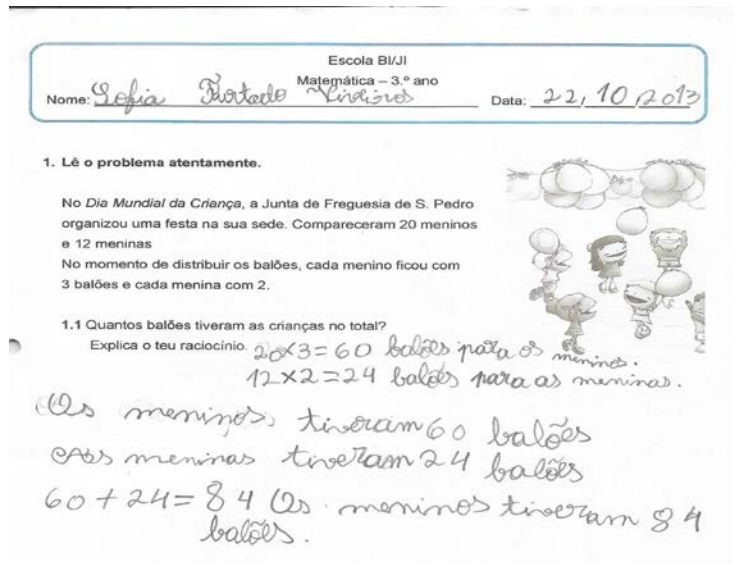 Escola BI/JI
Matemática – 3.º ano
Nome: Sofia Furtado
Data: 22, 10, 2013
1. Lê o problema atentamente.
No Dia Mundial da Criança, a Junta de Freguesia de S. Pedro
organizou uma festa na sua sede. Compareceram 20 meninos
e 12 meninas
No momento de distribuir os balões, cada menino ficou com
3 balões e cada menina com 2.
1.1 Quantos balões tiveram as crianças no total?
Explica o teu raciocínio. 20x3=60 balões para os meninos.
12x2=24 balões para as meninas.
Os meninos tiveram 60 balões
As meninas tiveram 24 balões
60+24=84 Os meninos tiveram 84
balões.